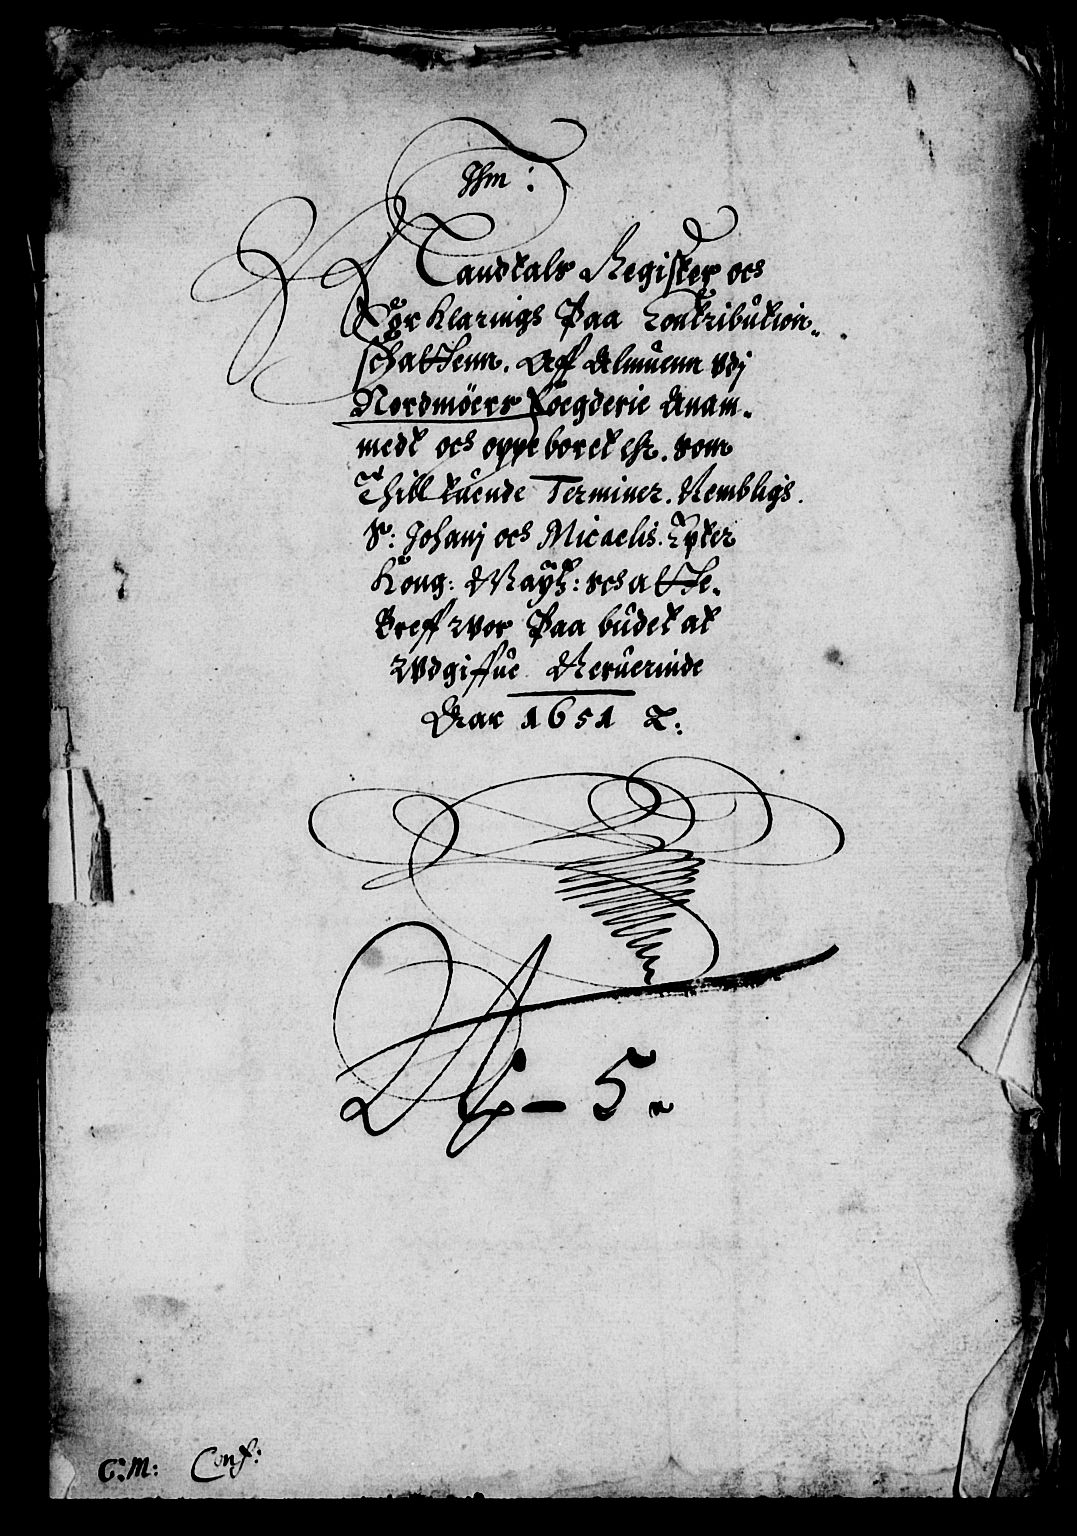 Ihm :
Mandtals Register och
For Klarings Paa Contribution„
schattenn. Aff Almuenn vdj
Nordmöers Foegderie Anam„
medt och oppeboret est. som
Thill tuende Terminer. Nembligs.
S: Johanj och Micaelis. Epter
Kong: Mayt: schatte„
breff wor Paa budet at
wdgiffue Neruerinde
Aar 1651 &:
N – 5 „
C: M: Conf: